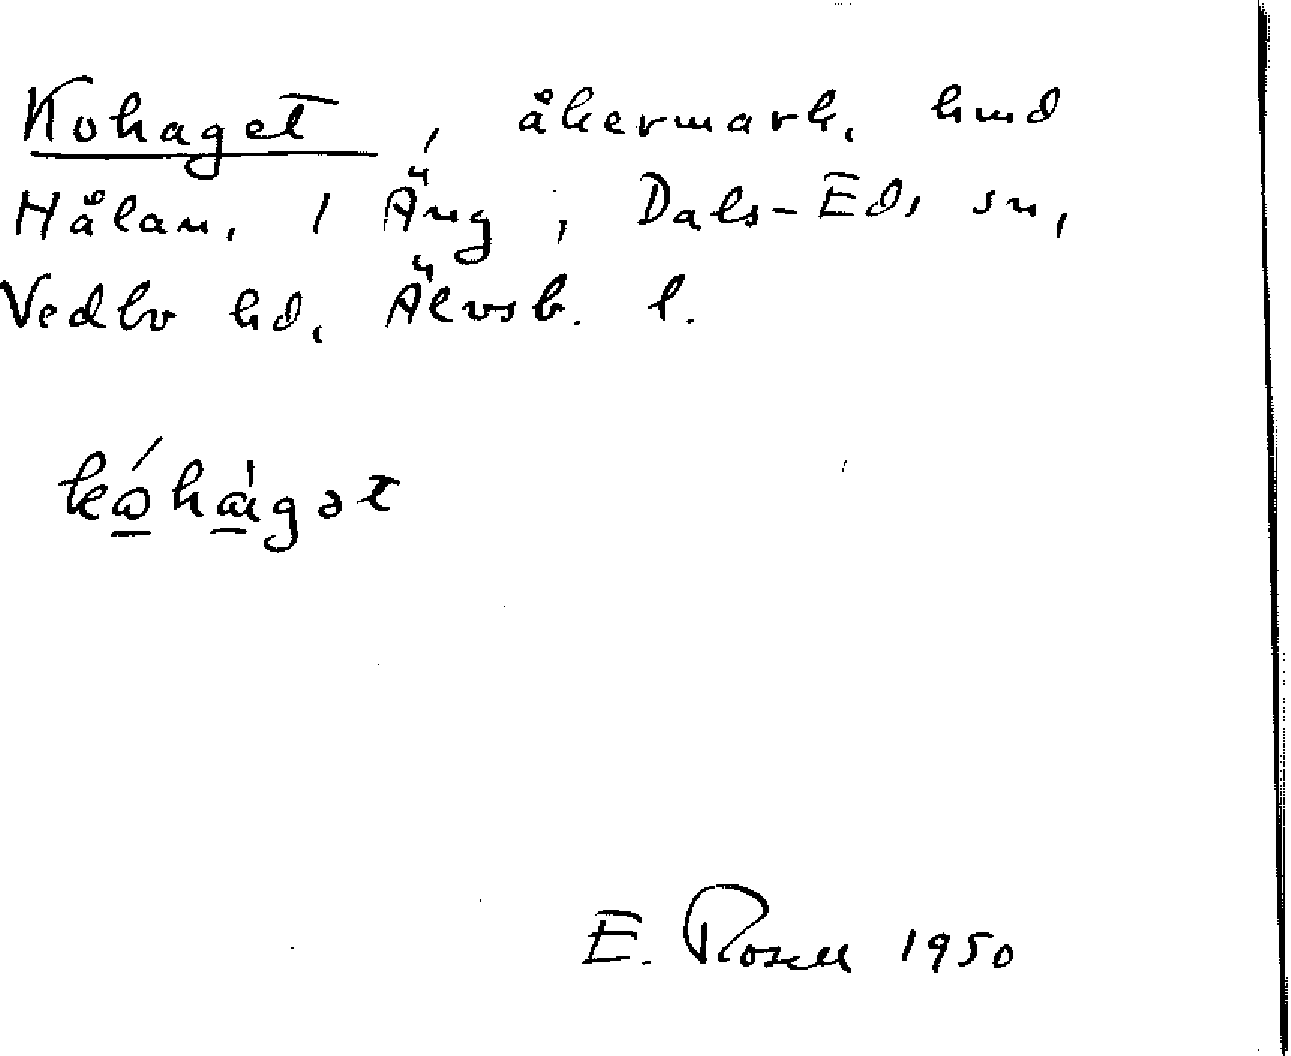 Kohaget, åkermark, hmd
Hålan, 1 Äng, Dals-Eds sn,
Vedbo hd, Älvsb. l.
kóhágət
E. Rosell 1950